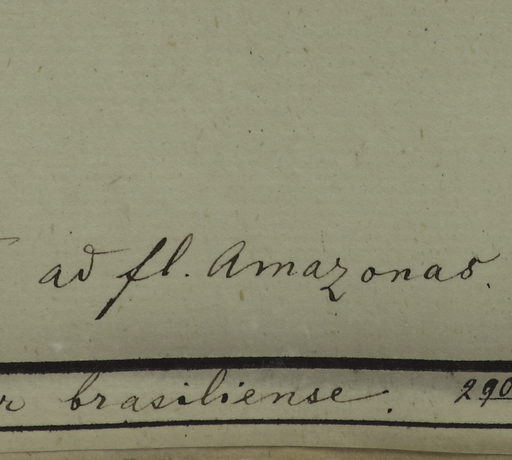 ad fl. Amazonas.
brasiliense. 290